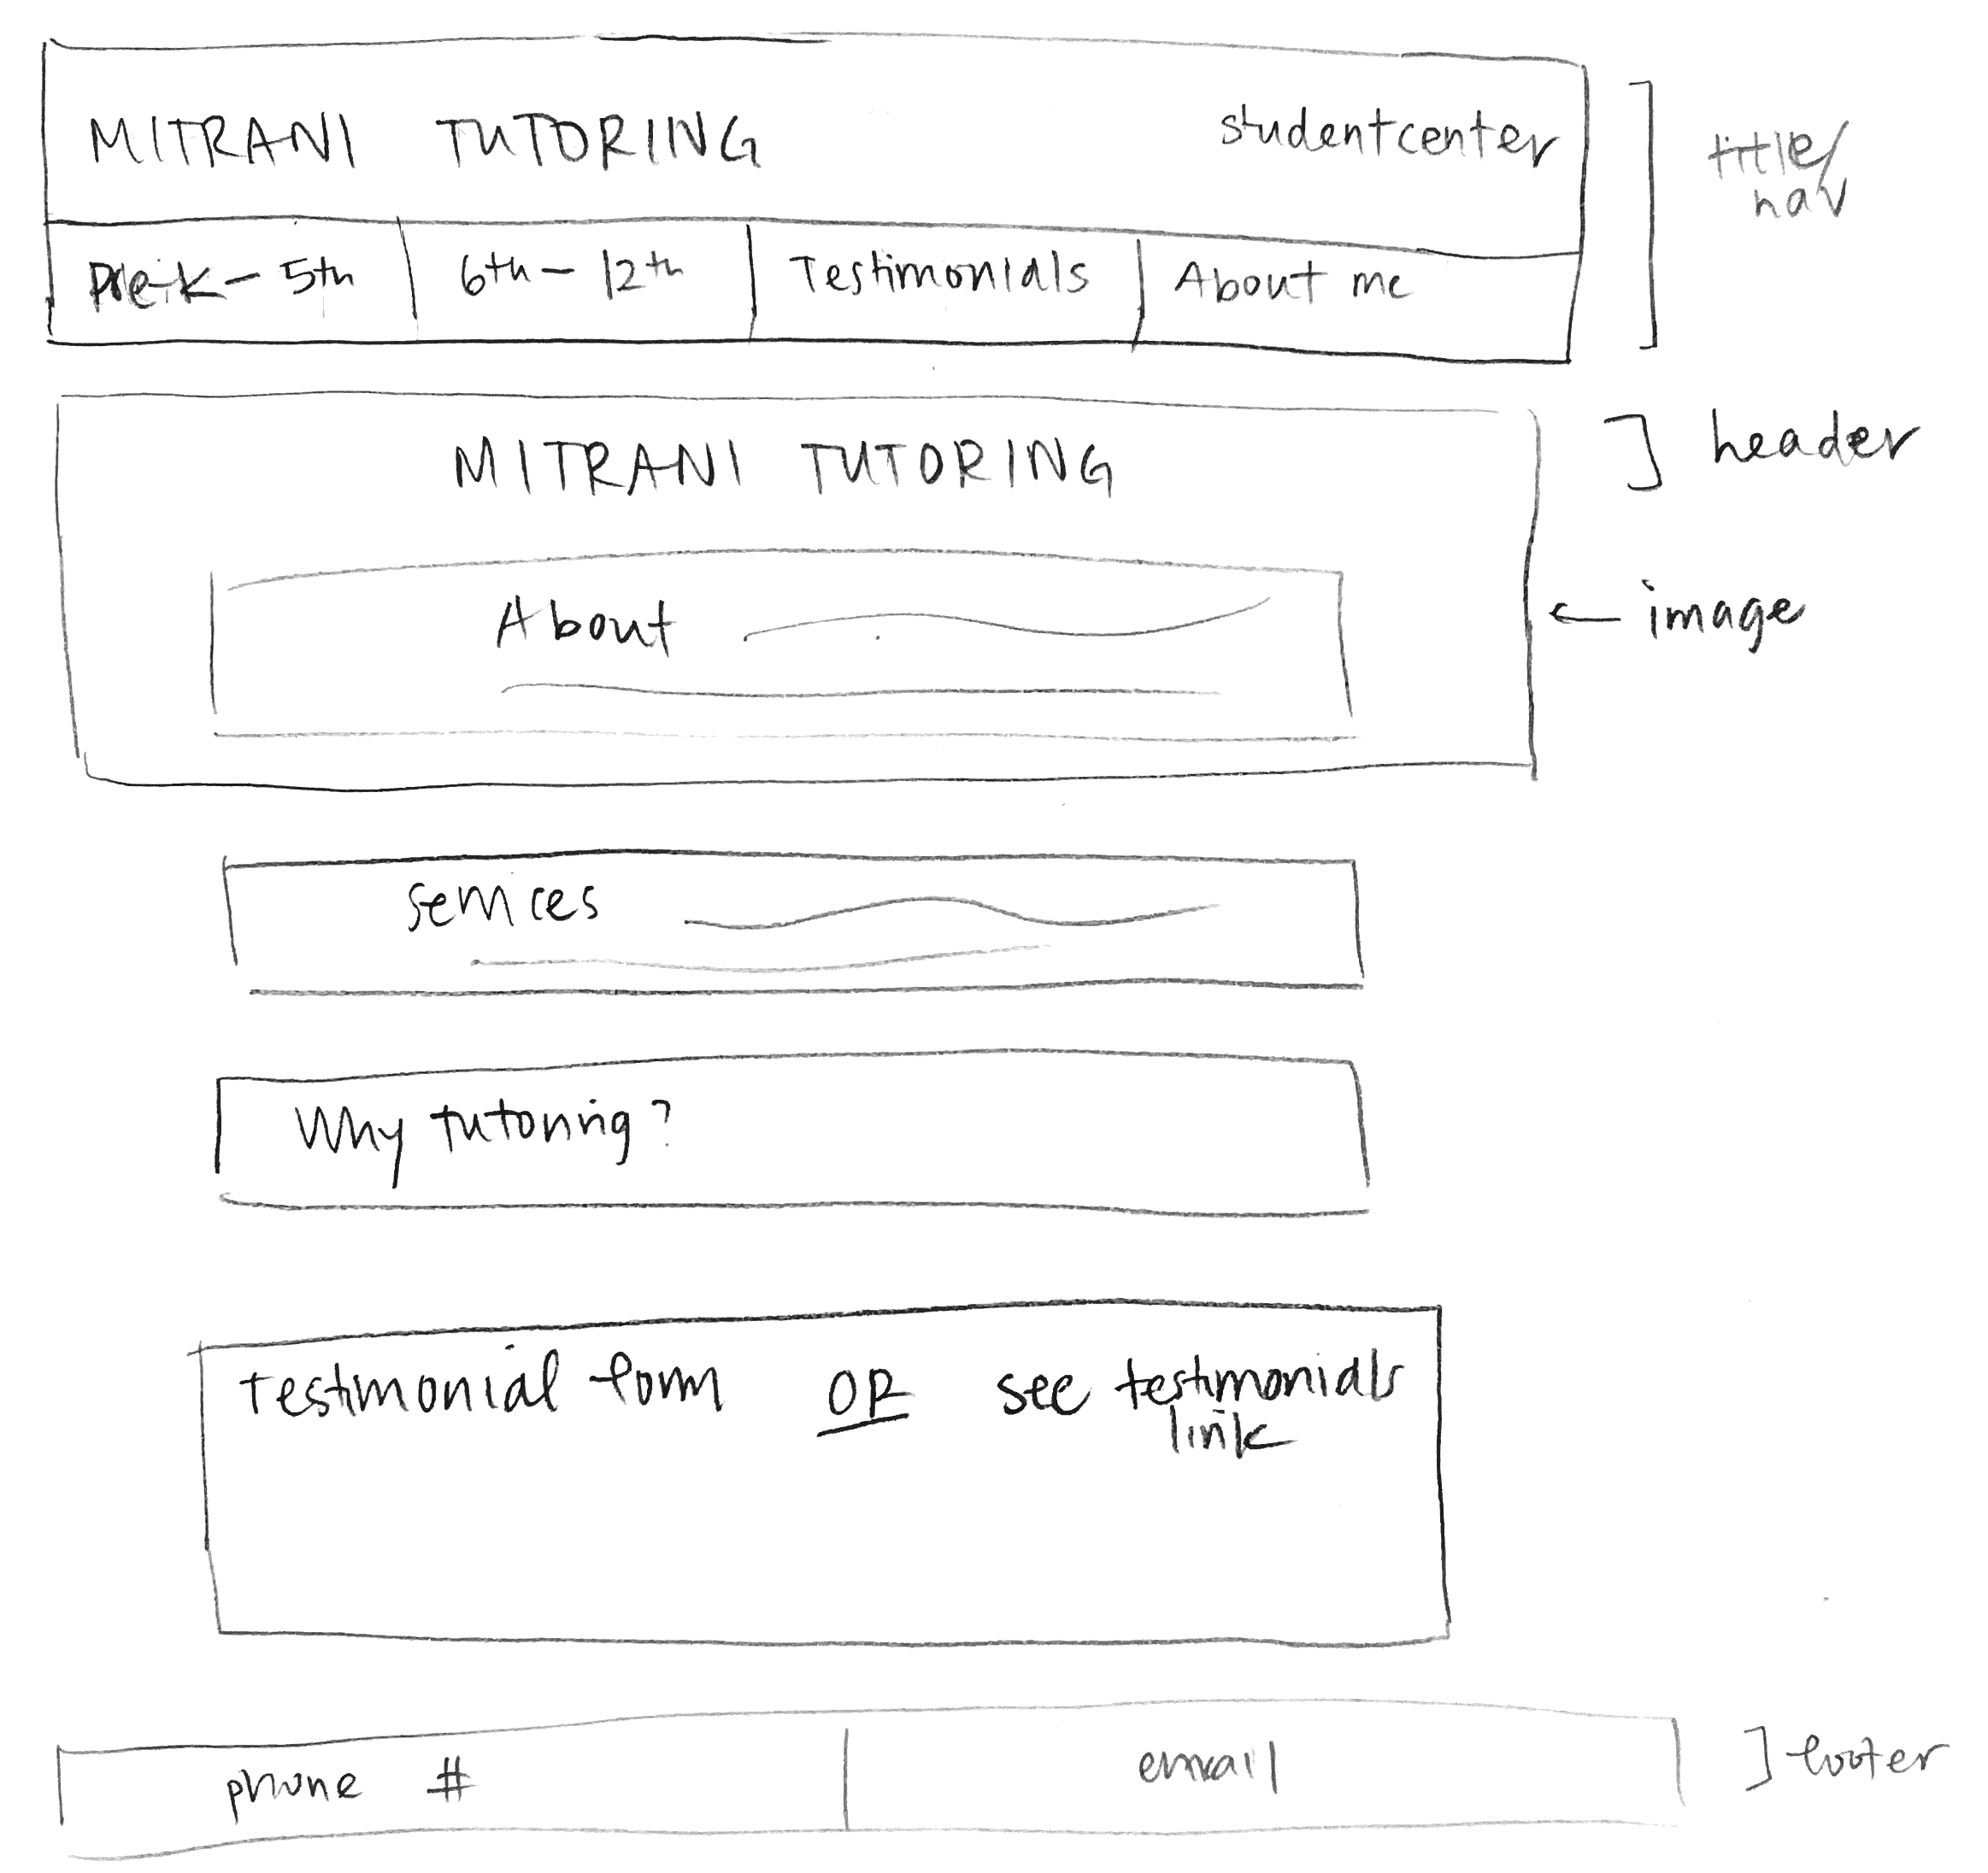 MITRANI TUTORING studentcenter
title/
nav
Pre-k - 5th 6th - 12th Testimonials About me
MITRANI TUTORING
header
About
image
services
Why tutoring?
Testimonial form OR see testimonials
link
phone # email
footer